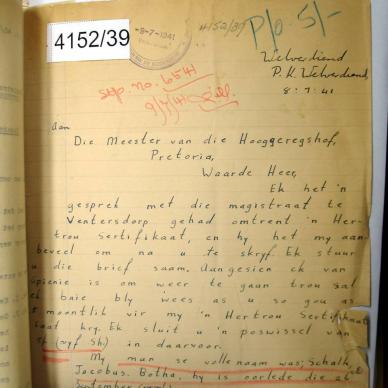 4152/39
-8-7-1941
4152/39
P/o. 5/-
Welverdiend
P.K. Welverdiend,
8:7:41
Stp. no. 6541
9/7/41
Aan
Die Meester van die Hooggeregshof,
Pretoria,
Waarde Heer,
Ek het 'n
gesprek met die magistraat te
Ventersdorp gehad omtrent 'n Her-
trou Sertifikaat, en hy het my aan-
beveel om na u te skryf. Ek stuur
u die brief saam. Aangesien ek van
opienie is om weer te gaan trou sal
ek baie bly wees as u so gou as
moontlik vir my 'n Hertrou Sertifikaat
laat kry. Ek sluit u 'n poswissel van
5/- (vyf Sh.) in daarvoor.
My man se volle naam was; Schalk
Jacobus. Botha, hy is oorlede die
September